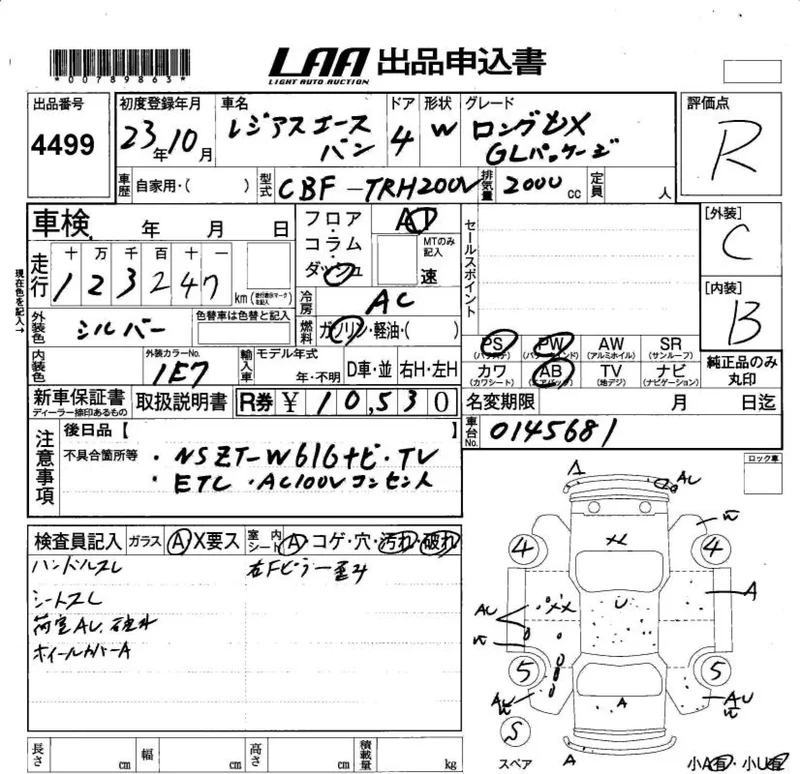 *00789863*
LAA 出品申込書
LIGHT AUTO AUCTION
出品番号 初度登録年月 車名 ドア 形状 グレード 評価点
4499 23年10月 レジアスエース 4 W ロングDX R
バン GLパッケージ
車歴 自家用・( ) 型式 CBF-TRH200V 排気量 2000cc 定員 人
車検 年 月 日 フロア・コラム・ダッシュ AT MTのみ記入 速 セールスポイント [外装] C
現在色を記入→
走行 十 万 千 百 十 一
1 2 3 2 4 7 km (走行距離マークを記入)
冷房 AC [内装] B
外装色 シルバー 色替車は色替と記入 燃料 ガソリン・軽油・( )
PS PW AW SR
(パワステ) (パワーウインド) (アルミホイル) (サンルーフ)
内装色 外装カラーNo. 1E7 輸入車 モデル年式 年・不明 D車・並 右H・左H
カワ AB TV ナビ
(カワシート) (エアバッグ) (地デジ) (ナビゲーション)
純正品のみ丸印
新車保証書 取扱説明書 R券 ¥ 10,530 名変期限 月 日迄
ディーラー捺印あるもの
車台No. 0145681
注意事項 後日品【 】
不具合箇所等 ・NSZT-W61Gナビ・TV
・ETC ・AC100Vコンセント
ロック車
検査員記入 ガラス A X要ス 室内シート A・コゲ・穴・汚れ・破れ
ハンドルスレ 右Fピラー歪み
シートスレ
荷室AU、
ホイールカバーA
A
AU
XX
4 4
A
AU
XX
U
5 5
AU
A
AU
S
スペア
A
小A有・小U有
長さ cm 幅 cm 高さ cm 積載量 kg